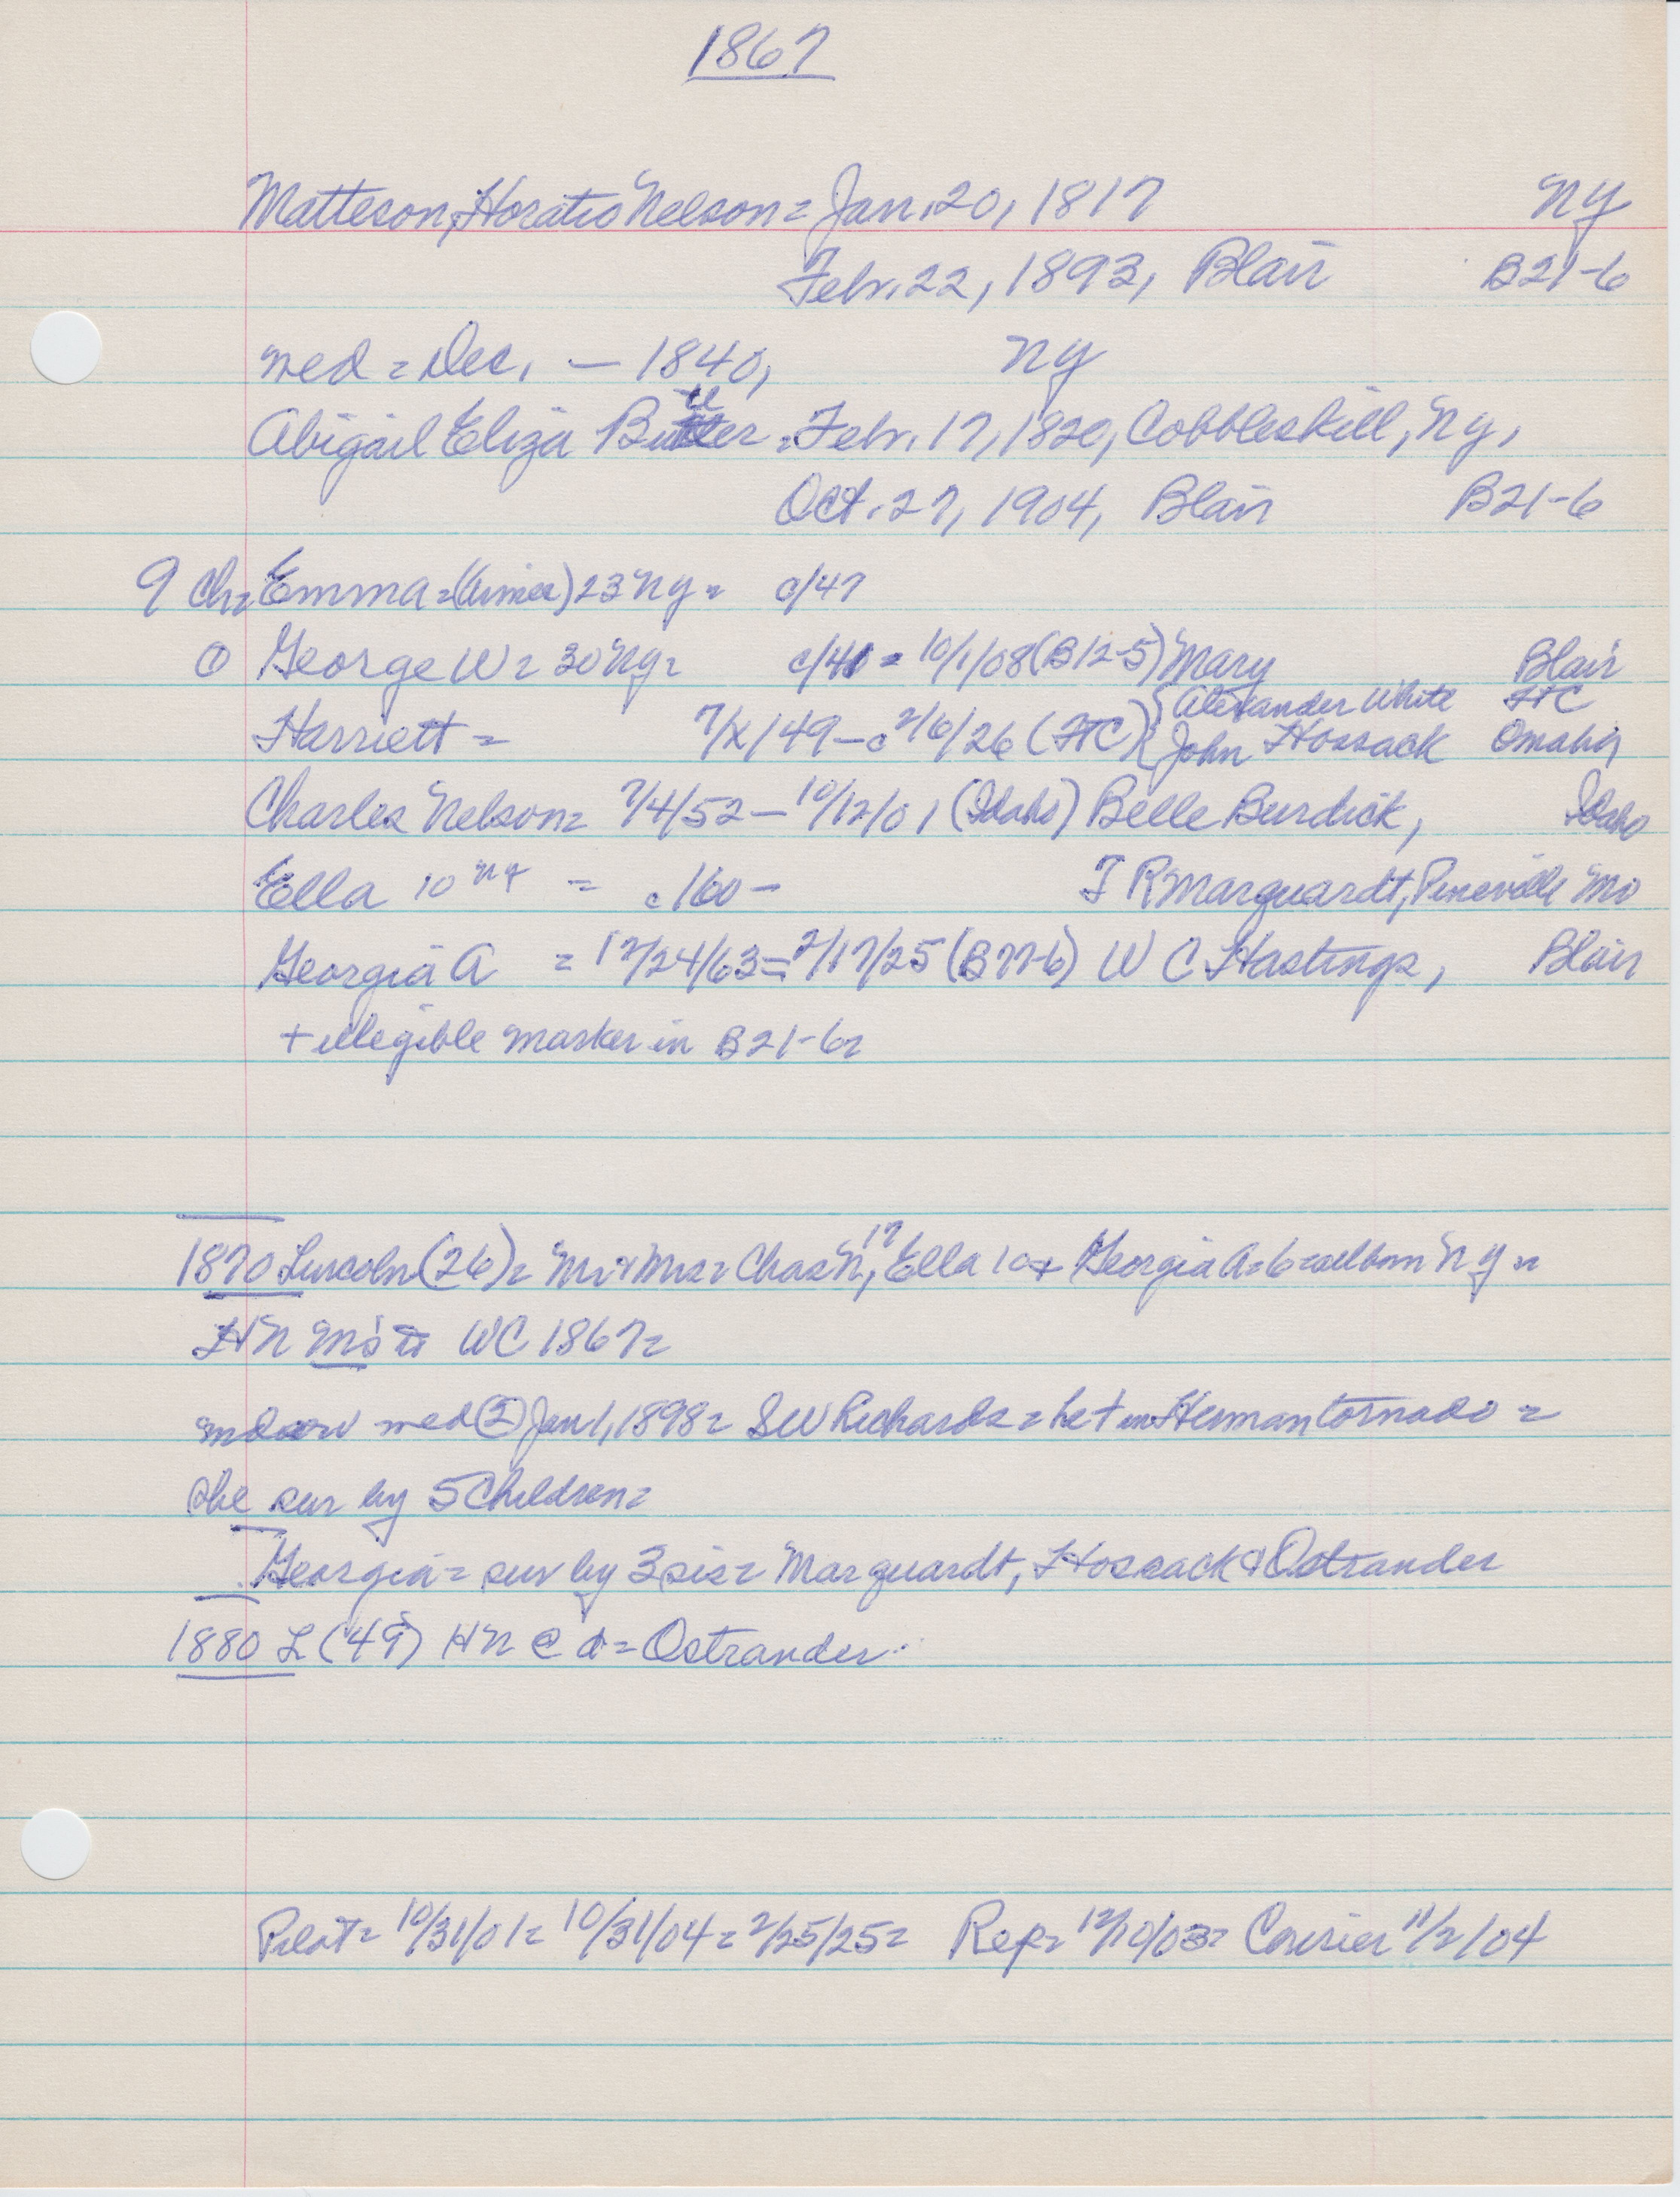 1867
Matteson, Horatio Nelson = Jan. 20, 1817 NY
Febr. 22, 1893, Blair B21-6
med = Dec. — 1840, NY
Abigail Eliza Febr. 17, 1820, Cobbleskill, NY,
Oct. 27, 1904, Blair B21-6
9 Ch = Emma = 23 NY = c/47
0 George W = 30 NY = = 10/1/08 (B12-5) Mary Blair
{ Alexander White FtC
Harriett = 7/x/49 – c 2/6/26 (FtC) { John Hossack Omaha
Charles Nelson = 7/4/52 – 10/12/01 (Idaho) Belle Burdick, Idaho
Ella 10 NY = c/60 – Marquardt, Pineville Mo
Georgia A = 12/24/63 = 2/17/25 W C Hastings, Blair
+ illegible marker in B21-6 =
1870 Lincoln (26) = Mr + Mrs = Chas N, 17 Ella 10 + Georgia A = 6 = all born NY =
HN WC 1867 =
med ② Jan 1, 1898 = SW Richards = he + in Herman tornado =
she sur by 5 Children =
Georgia = sur by 3 sis = Marquardt, Hossack & Ostrander
1880 L (49) HN @ d = Ostrander
Pilot = 10/31/01 = 10/31/04 = 2/25/25 = Rep = 12/10/03 = Courier 11/2/04